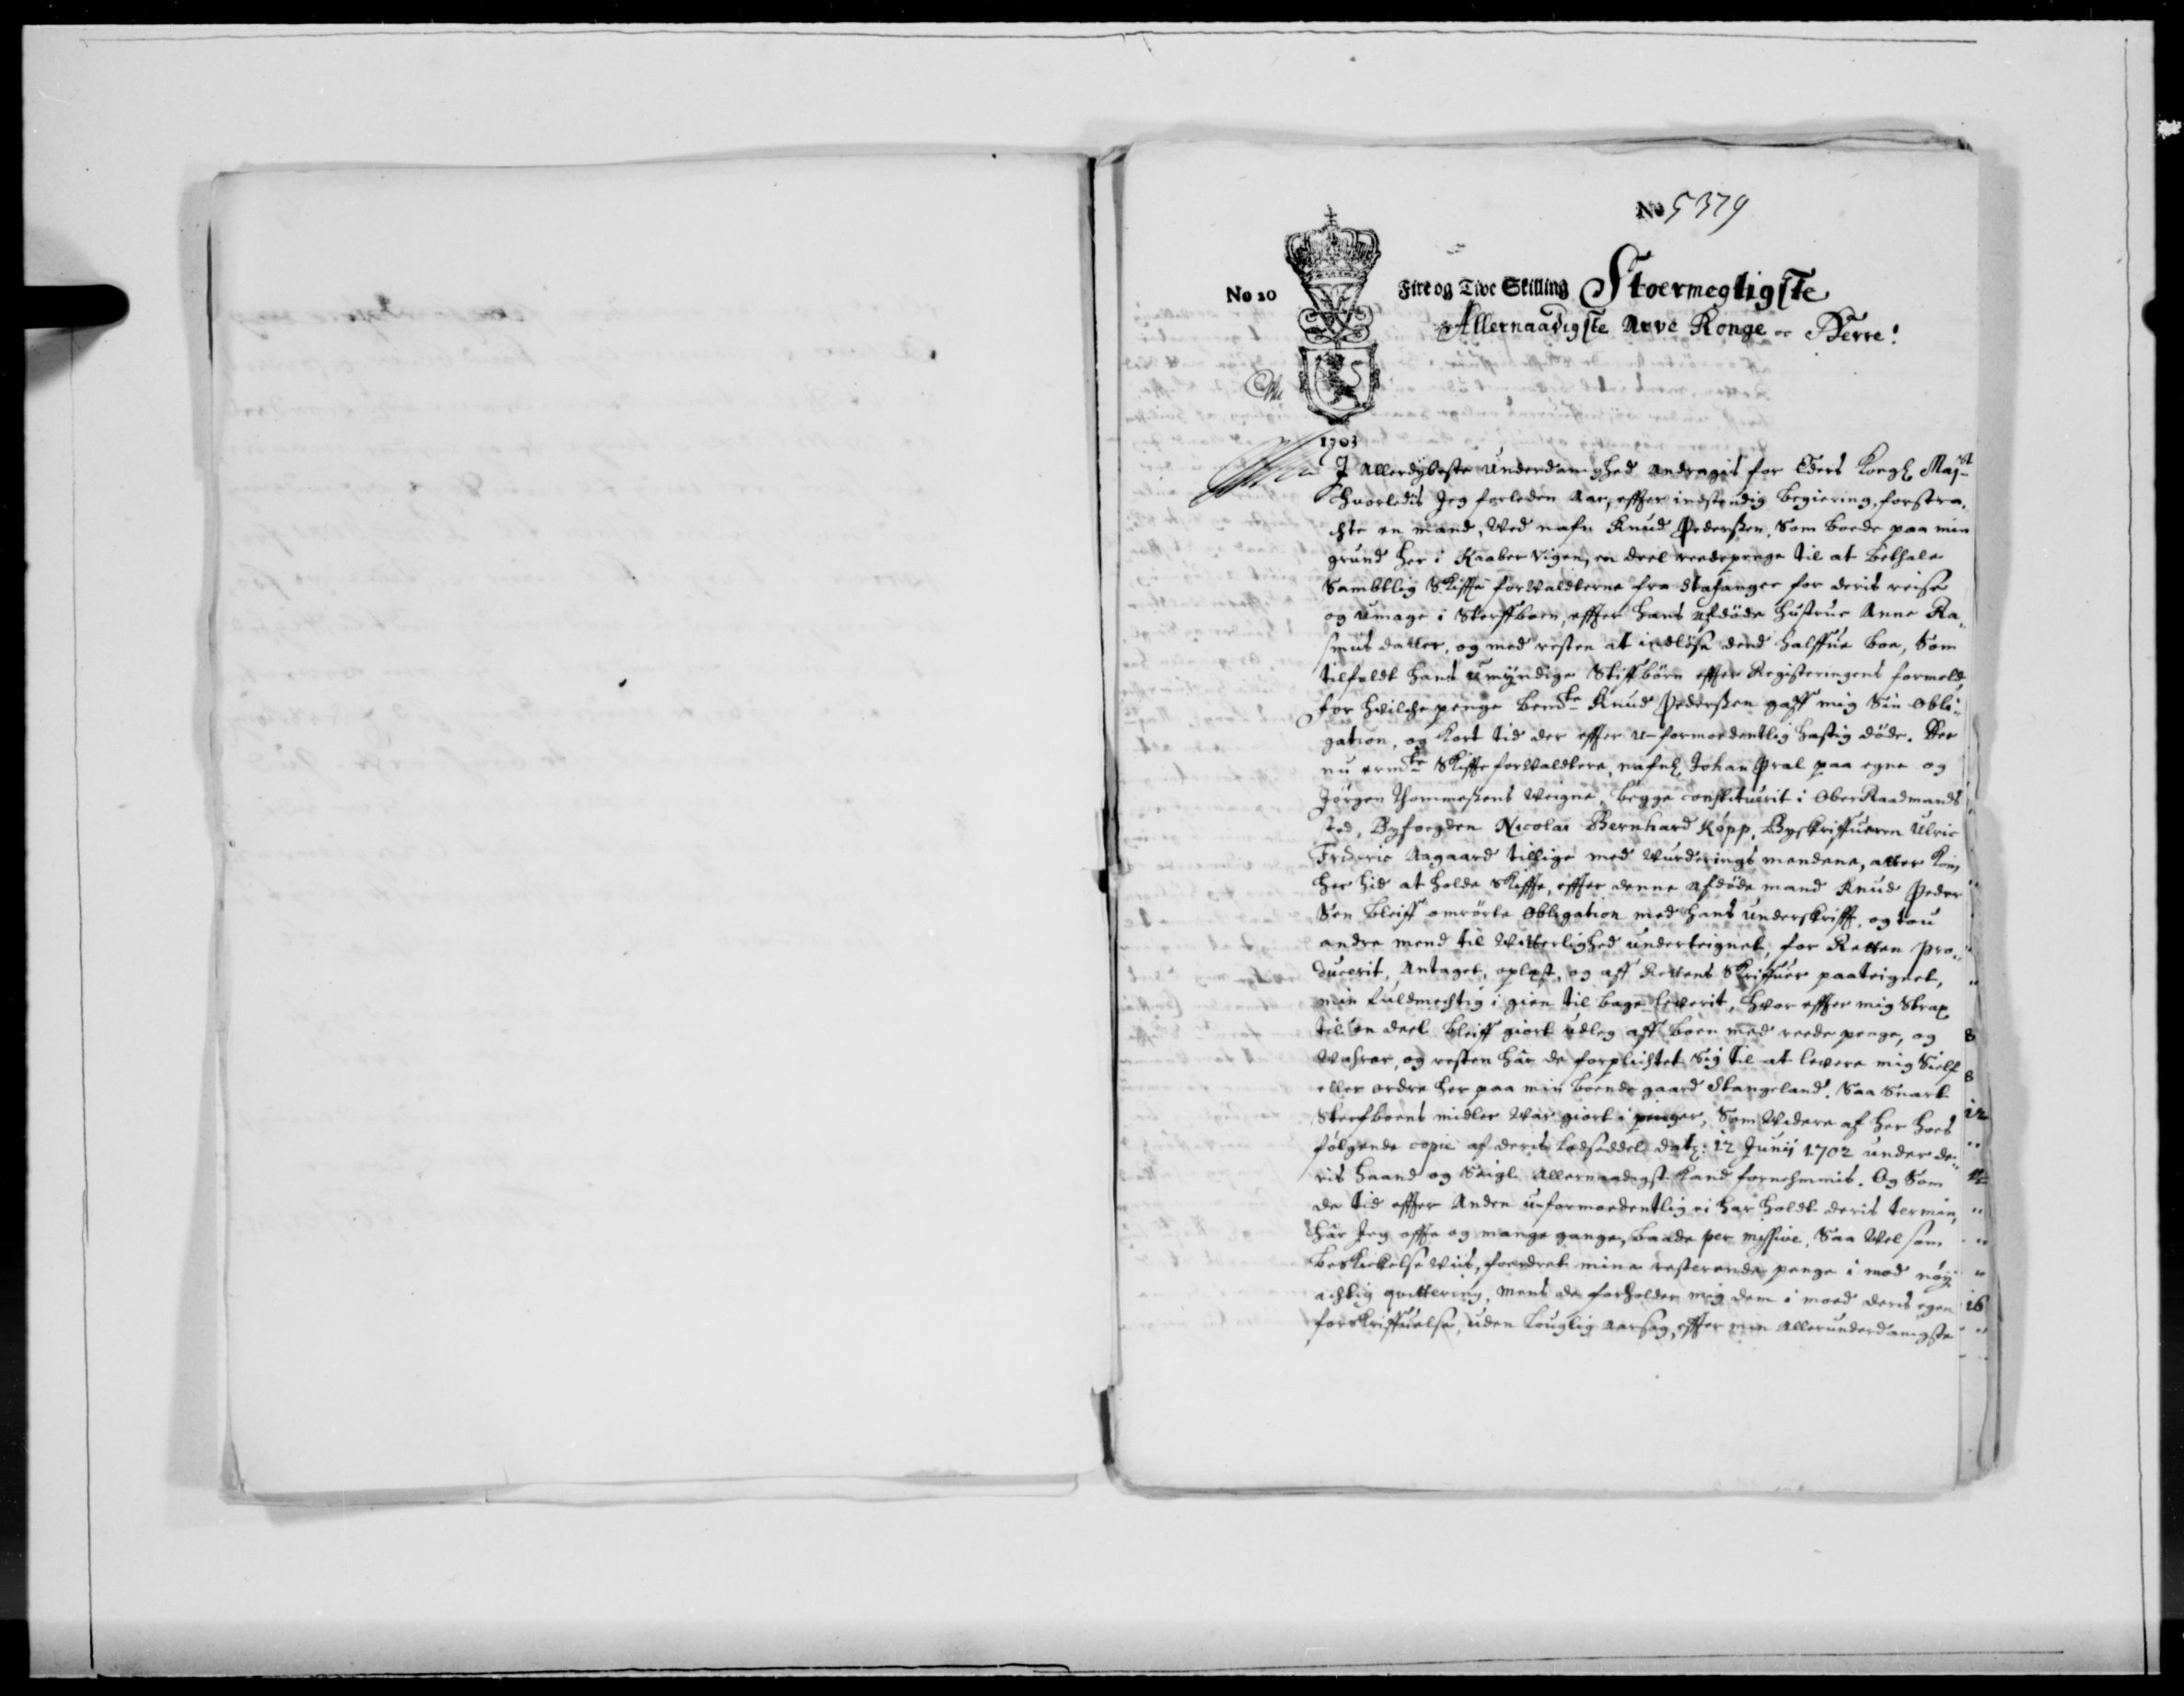 No 5379
No 20 Fire og Tive Skilling Stoermegtigste
Allernaadigste Arve Konge oc Herre!
1703
I Allerdybeste underdanighed andragis for Eders Kongl Maj:st
hvorledis Jeg forleden Aar, effter indstendig begiering, forstra,
chte en mand, Ved nafn Knud Pedersen, Som boede paa min
grund her i Kaaber Vigen, en deel reedepenge til at bethale
Sambtlig Skiffte forValdterne fra Stafanger for deris reise
og umage i Sterffboen, effter hans afdøde hustrue Anne Ra,
smus datter, og med resten at indløse dend halffue boe, Som
tilfaldt hans umyndige Stiffbørn effter Registeringens formeld,
for hvilche penge bemte Knud Pedersen gaff mig Sin obli,
gation, og kort tid der effter u-formoedentlig hastig døde. Der
nu ermte Skiffte forValdtere, nafnl Johan Pral paa egne og
Jørgen Thommesens Veigne, begge constituerit i Ober Raadmands
sted, Byfoegden Nicolai Bernhard Kopp, Byskriffueren Ulric
Frideric Aagaard tillige med Vurderings mendene, atter kom
her hid at holde Skiffte, effter denne afdøde mand Knud Peder
Sen bleiff omrørte obligation med hans underskrifft, og tou
andre mend til Vitterlighed underteignet, for Retten pro,,
ducerit, Antaget, oplæst, og aff Rettens Skriffuer paateignet,
min fuldmechtig i gien til bage leverit, hvor effter mig Strax
til en deel bleiff giort udleg aff boen med reede penge, og
Vahrer, og resten har de forplichtet Sig til at levere mig Sielf
eller ordre her paa min boende gaard Stangeland. Saa Snart
Sterfboens midler Var giort i penger, Som Videre af her hoes
følgende copie af deris Lodseddel dat: 12 Junij 1702 under de,,
ris haand og Seigl Allernaadigst kand fornehmmis. Og Som
de tid effter Anden u-formoedentlig ei har holdt deris termin,
har Jeg offte og mange gange, baade per missive, Saa Vel som
beskickelse Viis, foerdret mine resterende penge i mod nøy
achtig qvittering, mens de forholder mig dem i moed deris egen
forskriffuelse, uden Louglig aarsag, effter min Allerunderdanigste
8
8
12
16